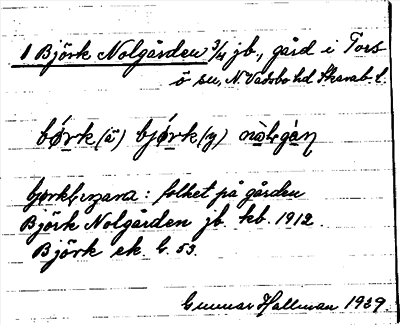 1 Björk Nolgården 3/4 jb., gård i Tors
ö sn, N Vadsbo hd Skarab. l.
bǿrk (ä) bjǿrk (y) nòlegàṇ
: folket på gården
Björk Nolgården jb kb. 1912.
Björk ek. b. 53.
Gunnar Hallman 1939